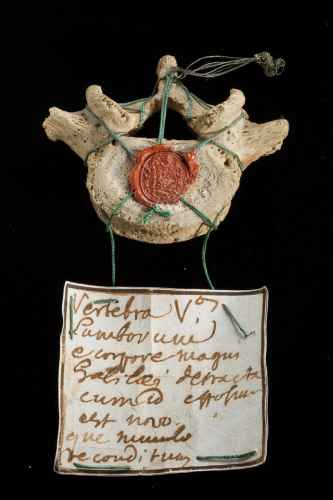 Vertebra Vᵃ
Lumborum
e corpore magni
Galilæi detracta
cum id effossum
est novo
que tumulo
reconditum